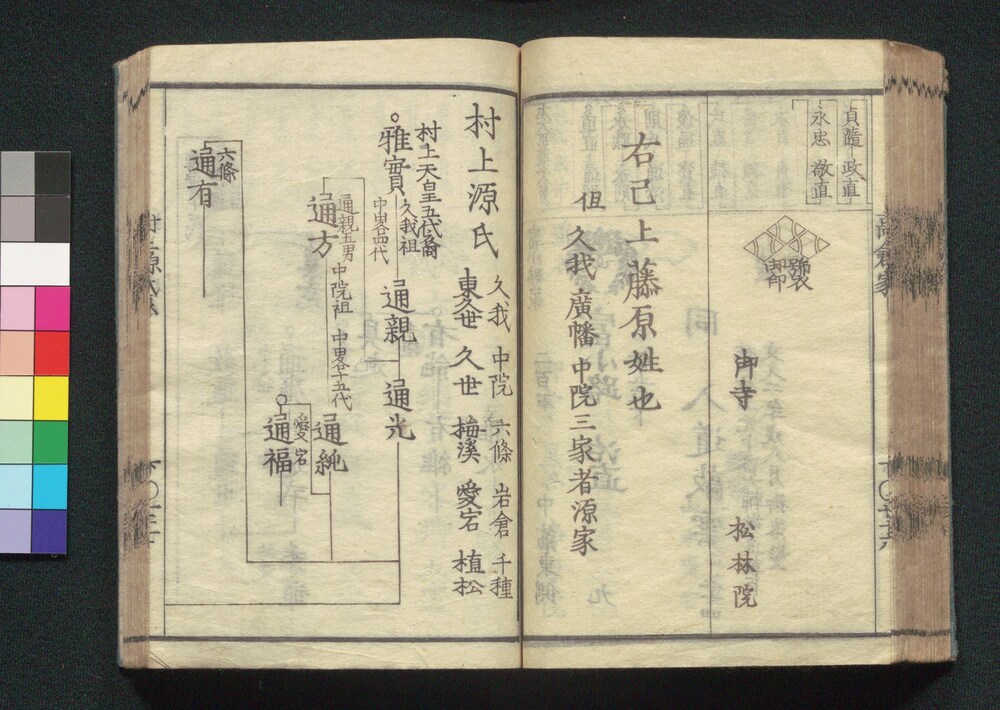 貞隨 政直
永忠 敬直
御寺 松林院
右己上藤原姓也
但久我廣幡中院三家者源家
村上源氏
久我 中院 六條 岩倉 千種
東久世 久世 梅溪 愛宕 植松
村上天皇五代裔
雅實
久我祖
中畧四代
通親
通光
通方
通親五男
中院祖
中畧十五代
通純
愛宕
通福
六條
通有